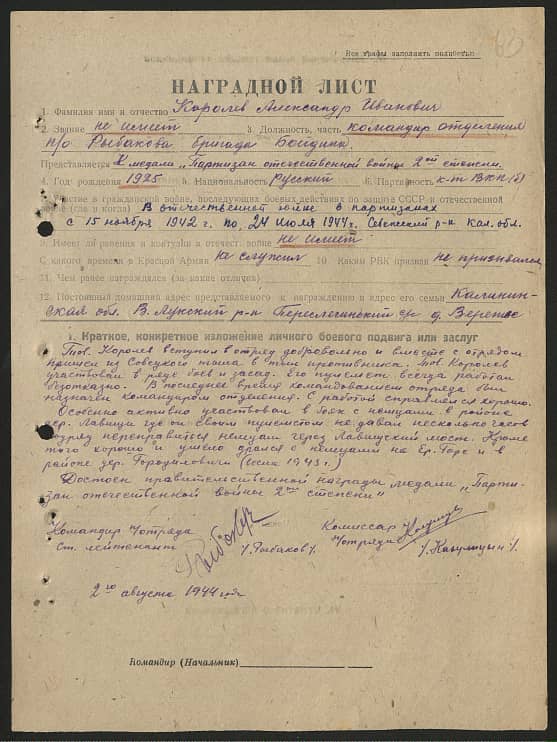 Все графы заполнять полностью
НАГРАДНОЙ ЛИСТ
1. Фамилия имя и отчество Королев Александр Иванович
2. Звание не имеет 3. Должность, часть командир отделения
п/о Рыбакова, бригада Бойдина.
Представляется К медали "Партизан отечественной войны 2ой степени.
4. Год рождения 1925 5. Национальность русский 6. Партийность к-т ВКП(б)
7. Участие в гражданской войне, последующих боевых действиях по защите СССР и отечественной
войне (где и когда) В отечественной войне в партизанах
с 15 ноября 1942 г. по 24 июля 1944 г. р-н Кал. обл.
8. Имеет ли ранения и контузии в отечест. войне не имеет
9. С какого времени в Красной Армии не служил 10. Каким РВК призван не призывался
11. Чем ранее награждался (за какие отличия)
12. Постоянный домашний адрес представляемого к награждению и адрес его семьи Калинин-
ская обл. В. Лукский р-н с/с д.
I. Краткое, конкретное изложение личного боевого подвига или заслуг
Тов. Королев вступил в отряд добровольно и вместе с отрядом
пришел из Советского тыла в тыл противника. Тов. Королев
участвовал в ряде боев и засад. Его пулемет всегда работал
безотказно. В последнее время командованием отряда был
назначен командиром отделения. С работой справлялся хорошо.
Особенно активно участвовал в боях с немцами в районе
дер. Лавицы где он своим пулеметом не давал несколько часов
подряд переправиться немцам через Лавицкий мост. Кроме
того хорошо и умело дрался с немцами на и в
районе дер. 1943 г.)
Достоен правительственной награды медали "Парти-
зан отечественной войны 2ой степени"
Командир отряда Комиссар
ст. лейтенант /Рыбаков/. отряда
2го августа 1944 года
Командир (Начальник)